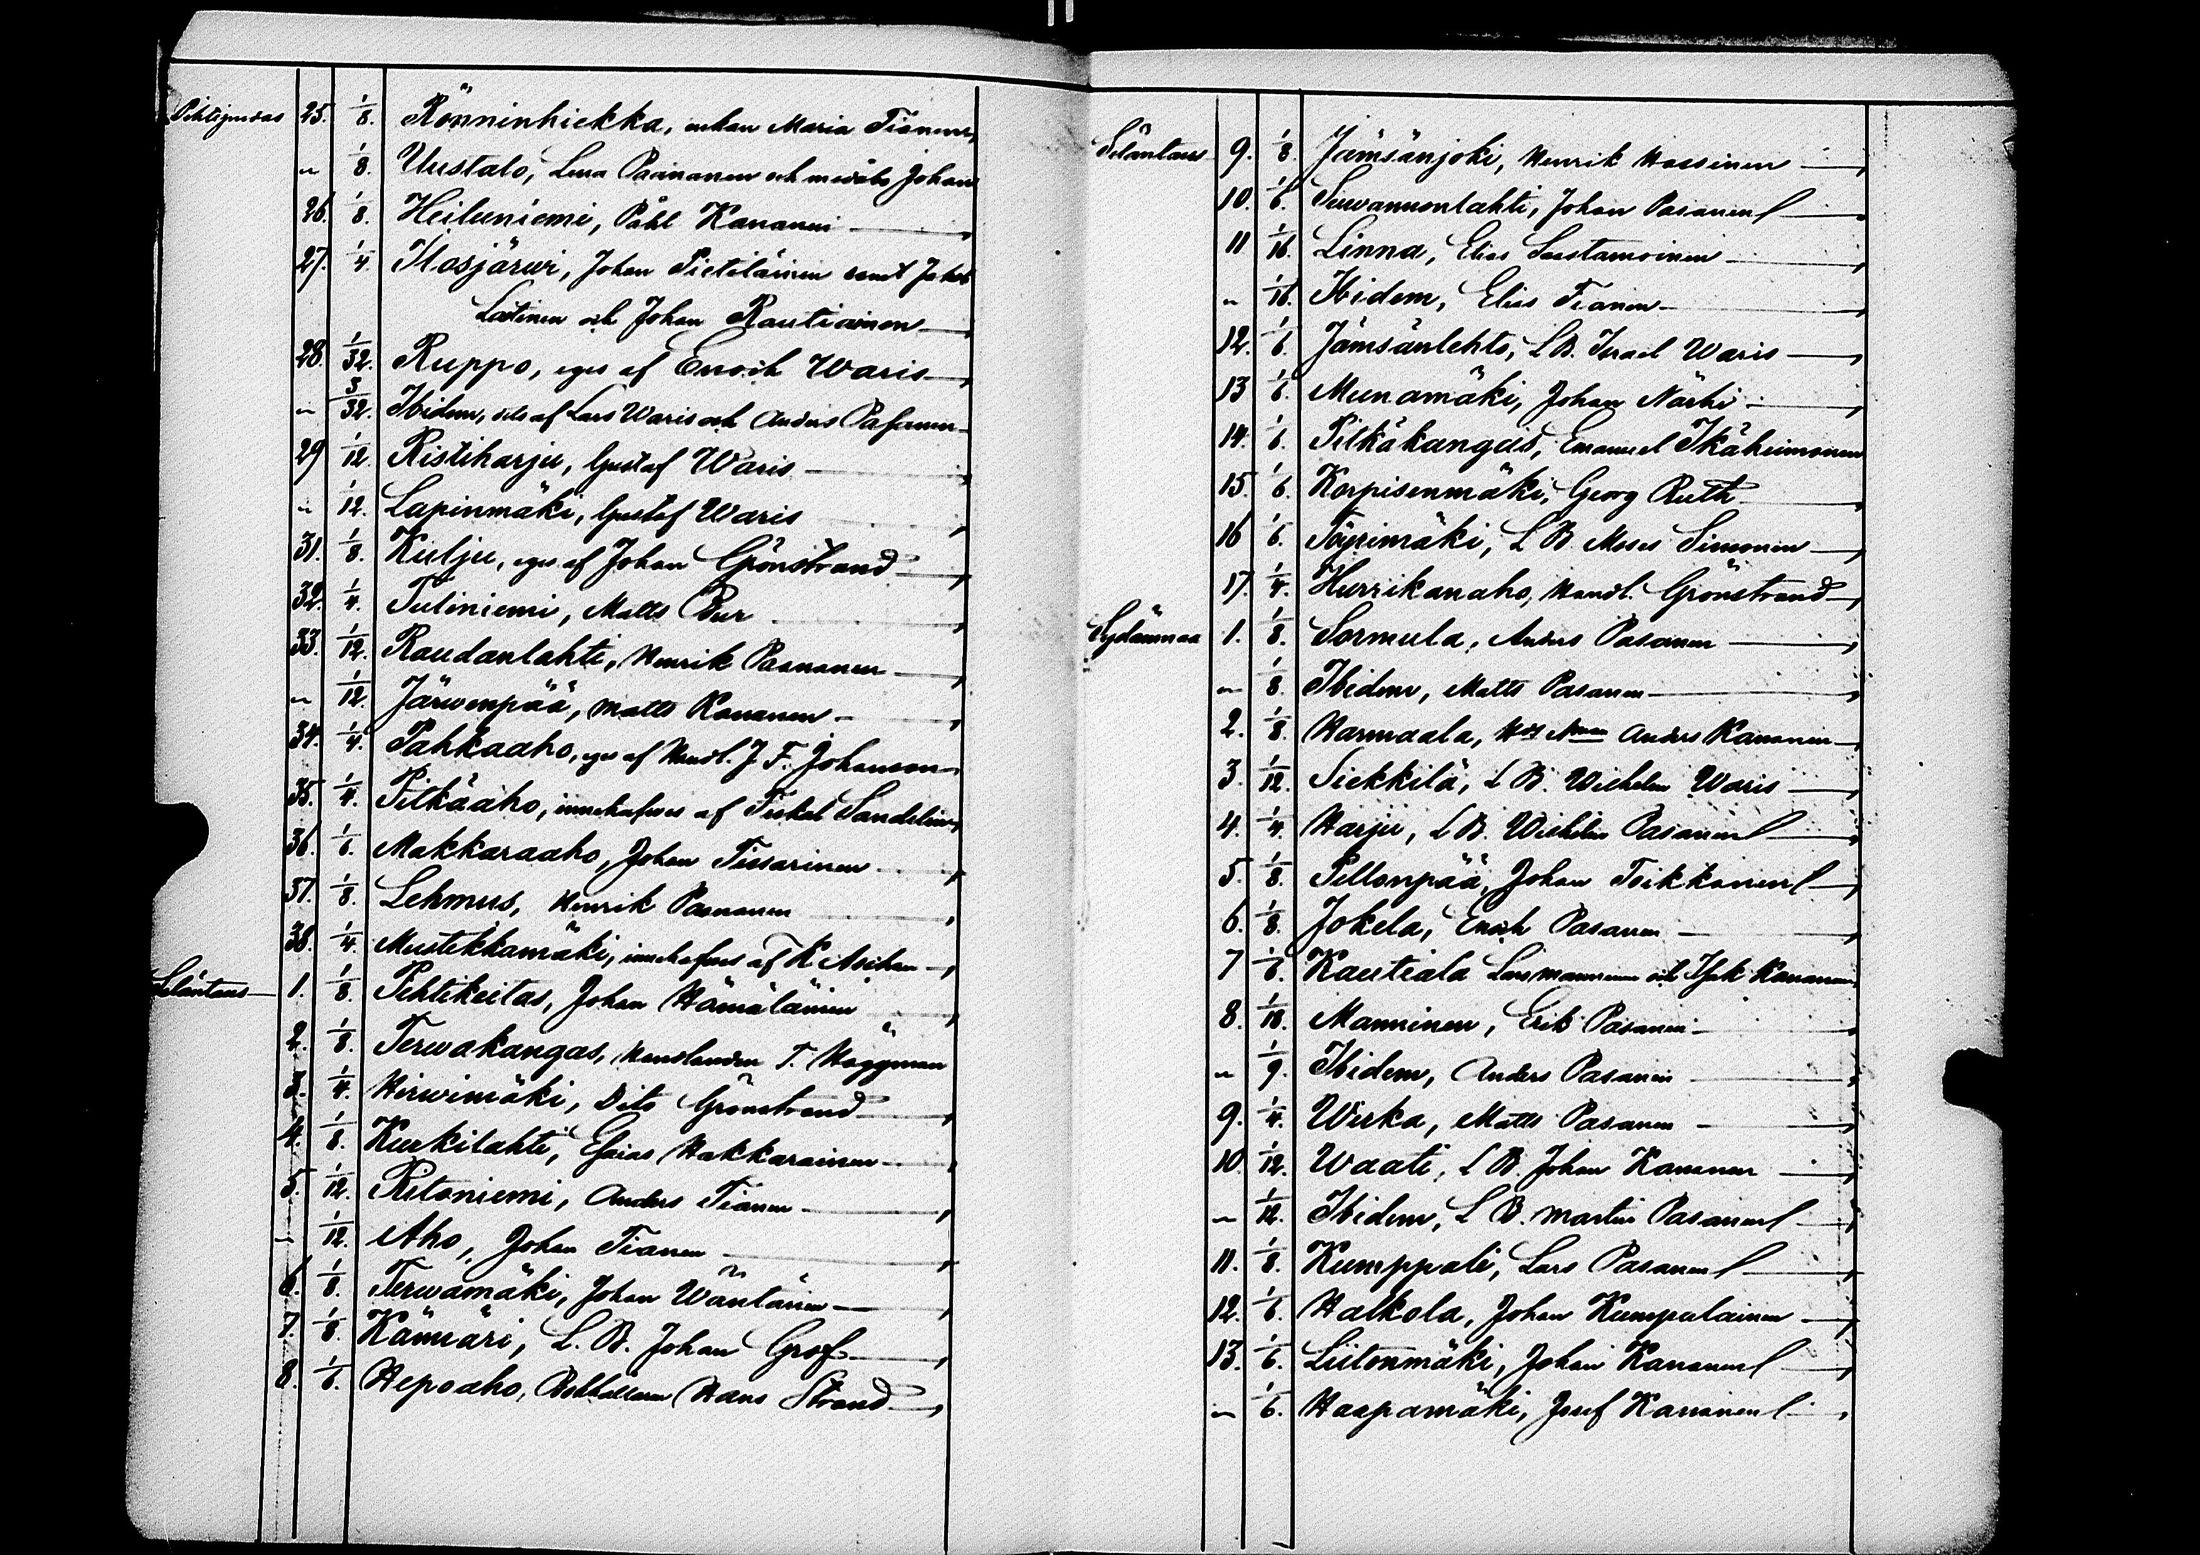 Pihlajmaas 25. 1/8. Rönninhiekka, enkan Maria Tianen,
" 1/8. Uustalo, Lena Paananen och medåbo Johan
26. 1/8. Heiluniemi, Påhl Kananen
27. 1/4. Ilosjärwi, Johan Pietiläinen samt Jakob
Lätinen och Johan Rautiainen
28. 1/32. Ruppo, eges af Enoch Waris
" 3/32. Ibidem, dito af Lars Waris och Anders Pasanen
29 1/12. Ristiharju, Gustaf Waris
" 1/12. Lapinmäki, Gustaf Waris
31. 1/8. Kulju, eges af Johan Grönstrand
32. 1/4. Tuliniemi, Matts Bur
33. 1/12. Raudanlahti, Henrik Paananen
" 1/12 Järwenpää, Matts Kananen
34. 1/4. Pahkaaho, eges af Handl. J. F. Johanson
35. 1/4. Pitkäaho, innehafwes af Fiskal Sandelin,
36. 1/6. Makkaraaho, Johan Tissarinen
37. 1/8. Lehmus, Henrik Paananen
38. 1/4. Mustikkamäki, innehafwes af K. Aschan
Seläntaus 1. 1/8. Pihtikeitas, Johan Hämäläinen
2. 1/8. Terwakangas, Handlanden T. Häggman
3. 1/4. Hirwimäki, Dito Grönstrand
4. 1/8. Kurkilahti, Esaias Hakkarainen
5. 1/12. Ritoniemi, Anders Tianen
" 1/12. Aho, Johan Tianen
6. 1/8. Terwamäki, Johan Wäntänen
7. 1/8. Kämäri, L. B. Johan Grof
8. 1/6. Hepoaho, Bokhållaren Hans Strand
Seläntaus 9. 1/8. Jämsänjoki, Henrik Hassinen
10. 1/6. Suwannonlahti, Johan Pasanen
11 1/16. Linna, Elias Saastamoinen
" 1/16. Ibidem, Elias Tianen
12. 1/6. Jämsänlehto, L B. Israel Waris
13 1/6. Munamäki, Johan Närhi
14. 1/6. Pitkäkangas, Emanuel Ikäheimonen
15. 1/6. Korpisenmäki, Georg Ruth
16 1/6. Töyrimäki, L B. Moses Simonen
17. 1/4. Hurrikanaho, Handl. Grönstrand
Sydänmaa 1. 1/8. Sormula, Anders Pasanen
" 1/8. Ibidem, Matts Pasanen
2. 1/8. Harmaala, Anders Kananen
3. 1/12. Siekkilä, L B. Wilhelm Waris
4. 1/4. Harju, L B. Wilhelm Pasanen
5. 1/8. Pellonpää, Johan Toikkanen
6. 1/8. Jokela, Enoch Pasanen
7 1/6. Kautiala Länsmannen och Isak Kananen
8. 1/18. Manninen, Erik Pasanen
" 1/9. Ibidem, Anders Pasanen
9. 1/4. Wirka, Matts Pasanen
10. 1/12. Waati, L B. Johan Kananen
" 1/12. Ibidem, L B. Martin Pasanen
11. 1/8. Kumppali, Lars Pasanen
12. 1/6. Halkola, Johan Kumpulainen
13. 1/6. Liitonmäki, Johan Kananen
" 1/6. Haapamäki, Josef Kananen